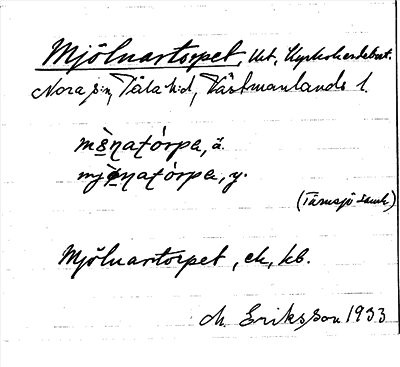 Mjölnartorpet, Utt, Kyrkoherdebost.
Nora sn, Våla hd, Västmanlands l.
mǫ̀ṇaṭórpa, ä.
mjǫ̀ṇaṭórpa, y.
(Tärnsjö samh)
Mjölnartorpet, ek, kb.
M. Eriksson 1933